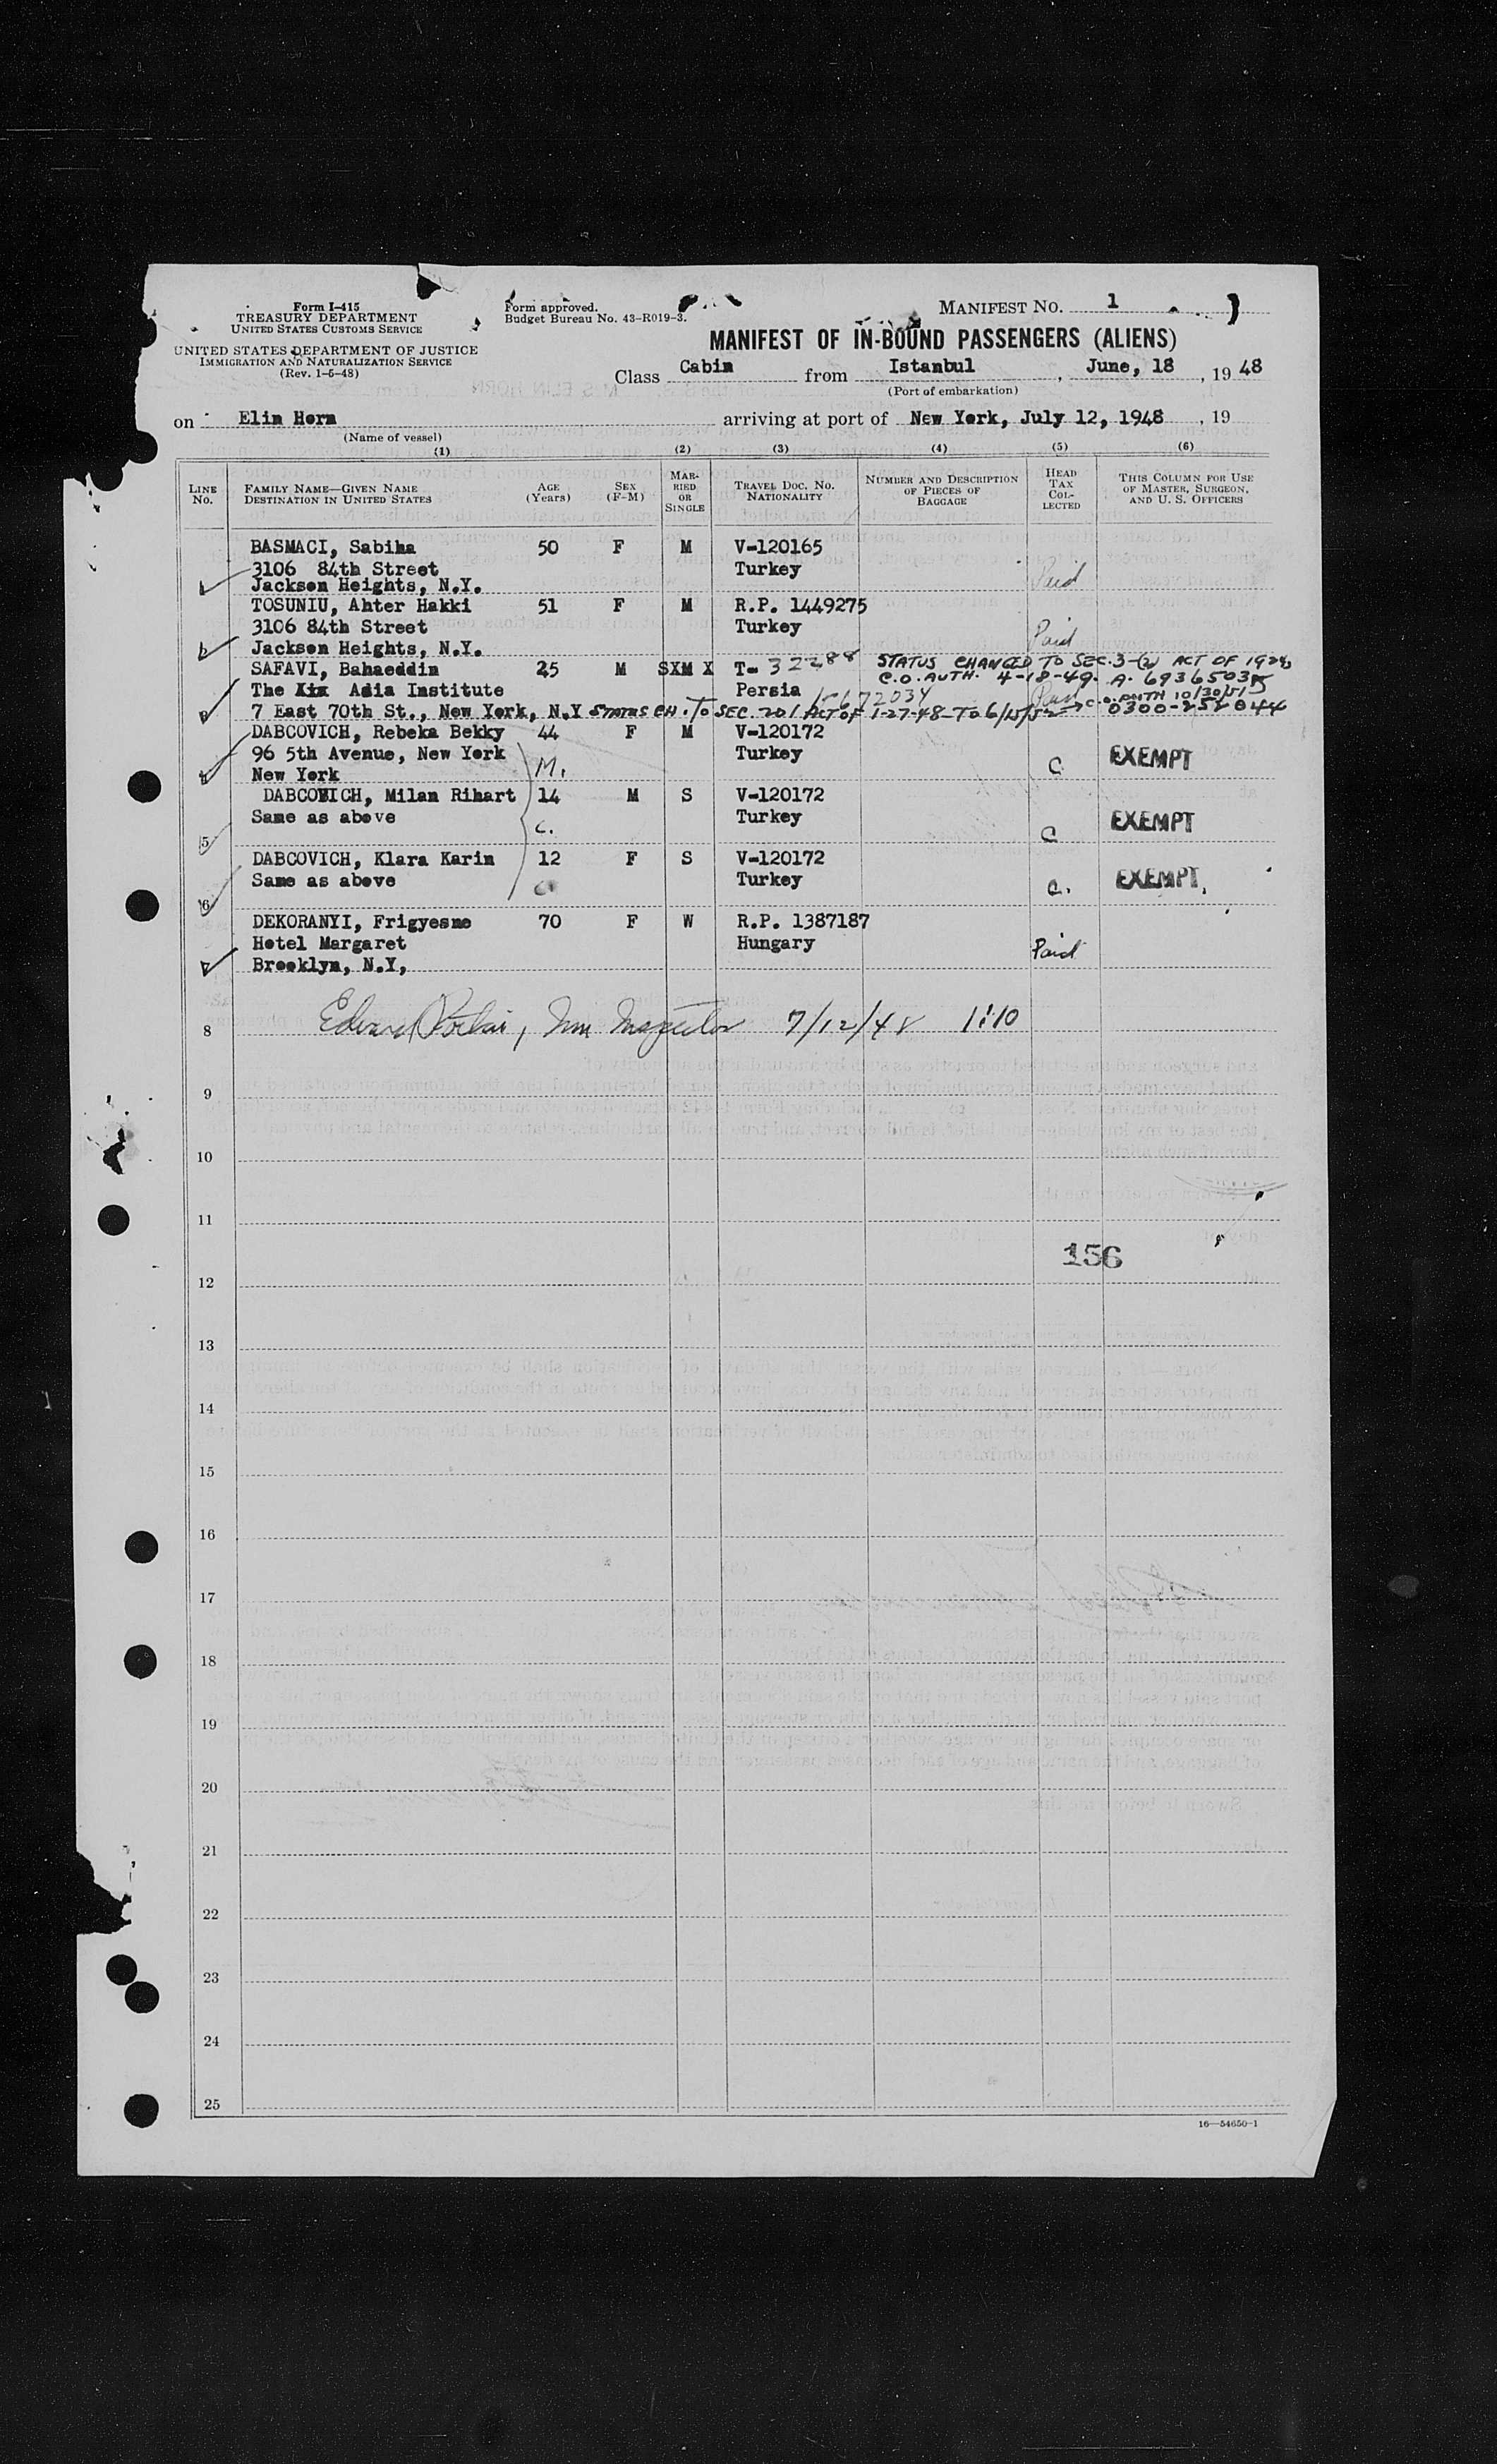 Form I-415
TREASURY DEPARTMENT
UNITED STATES CUSTOMS SERVICE
UNITED STATES DEPARTMENT OF JUSTICE
IMMIGRATION AND NATURALIZATION SERVICE
(Rev. 1-5-48)
Form approved.
Budget Bureau No. 43-R019-3.
MANIFEST NO. 1
MANIFEST OF IN-BOUND PASSENGERS (ALIENS)
Class Cabin from Istanbul , June, 18 , 19 48
(Port of embarkation)
on Elin Horn arriving at port of New York, July 12, 1948 , 19
(Name of vessel)
(1) (2) (3) (4) (5) (6)
LINE NO. FAMILY NAME—GIVEN NAME DESTINATION IN UNITED STATES AGE (Years) SEX (F-M) MARRIED OR SINGLE TRAVEL DOC. NO. NATIONALITY NUMBER AND DESCRIPTION OF PIECES OF BAGGAGE HEAD TAX COLLECTED THIS COLUMN FOR USE OF MASTER, SURGEON, AND U. S. OFFICERS
BASMACI, Sabiha 50 F M V-120165
3106 84th Street Turkey
1 Jackson Heights, N.Y. Paid
TOSUNIU, Ahter Hakki 51 F M R.P. 1449275
3106 84th Street Turkey
2 Jackson Heights, N.Y. Paid
SAFAVI, Bahaeddin 25 M SXM X T- 32288 STATUS CHANGED TO SEC. 3-(2) ACT OF 1924,
C.O. AUTH. 4-18-49. A. 6936503
The Xix Asia Institute Persia Paid C.O. AUTH 10/30/51
3 7 East 70th St., New York, N.Y STATUS CH. TO SEC. 201 ACT OF 1-27-48-TO 6/15/52 0300-252044
DABCOVICH, Rebeka Bekky 44 F M V-120172
96 5th Avenue, New York M. Turkey C EXEMPT
4 New York
DABCOVICH, Milan Rihart 14 M S V-120172
Same as above C. Turkey C EXEMPT
5
DABCOVICH, Klara Karin 12 F S V-120172
Same as above C Turkey C. EXEMPT
6
DEKORANYI, Frigyesne 70 F W R.P. 1387187
Hotel Margaret Hungary Paid
7 Brooklyn, N.Y,
8 Edward Imm Inspector 7/12/48 1:10
9
10
11
156
12
13
14
15
16
17
18
19
20
21
22
23
24
25
16—54650-1